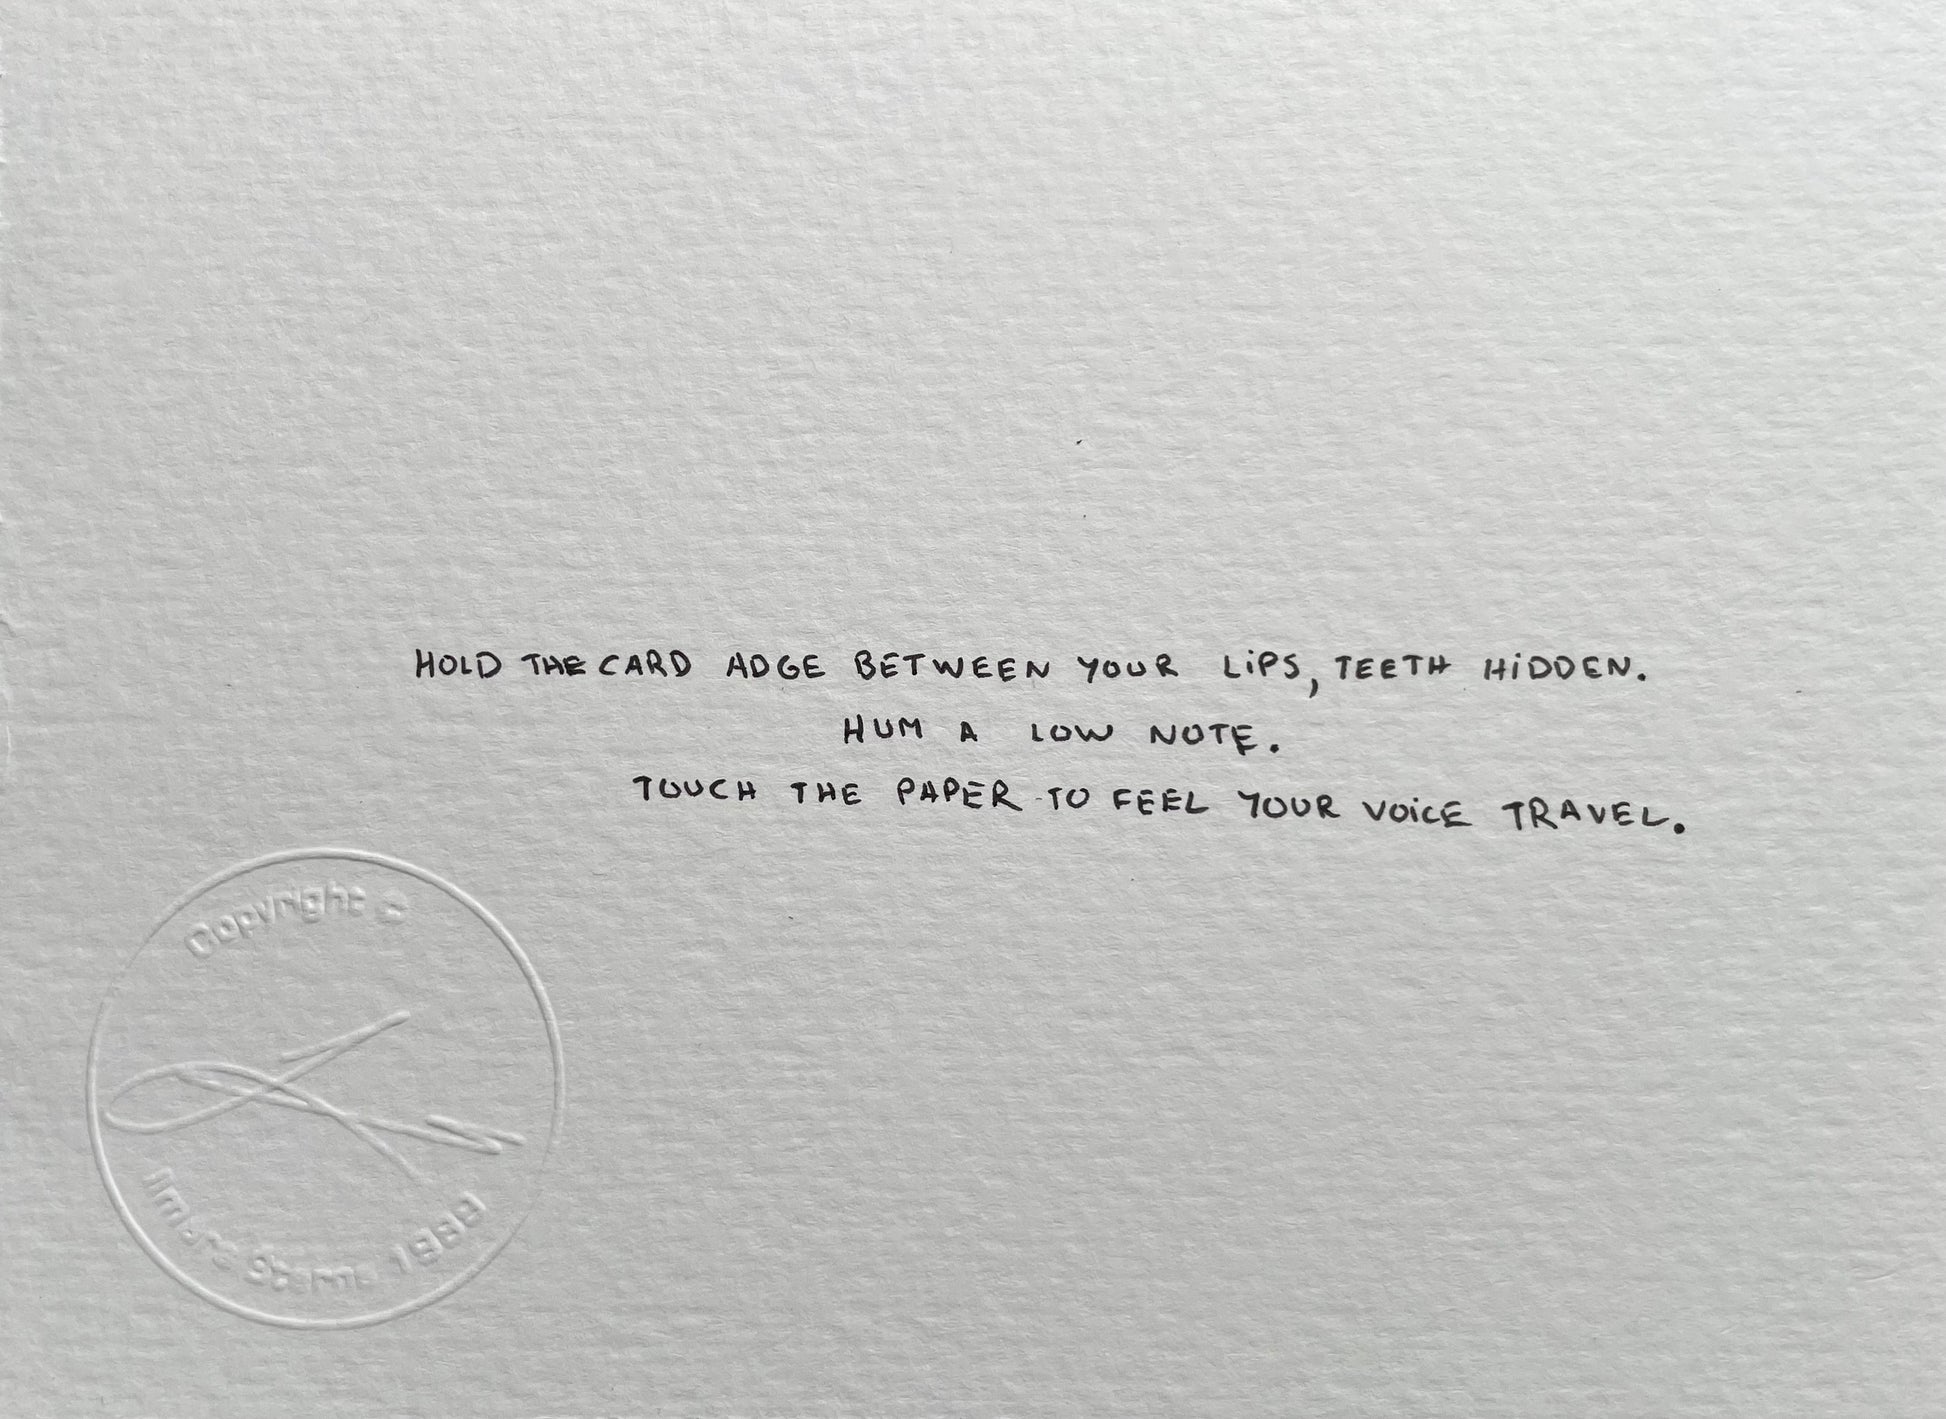 HOLD THE CARD ADGE BETWEEN YOUR LiPS, TEETH HiDDEN.
HUM A LOW NOTE.
TOUCH THE PAPER TO FEEL YOUR VOiCE TRAVEL.
Copyright ©